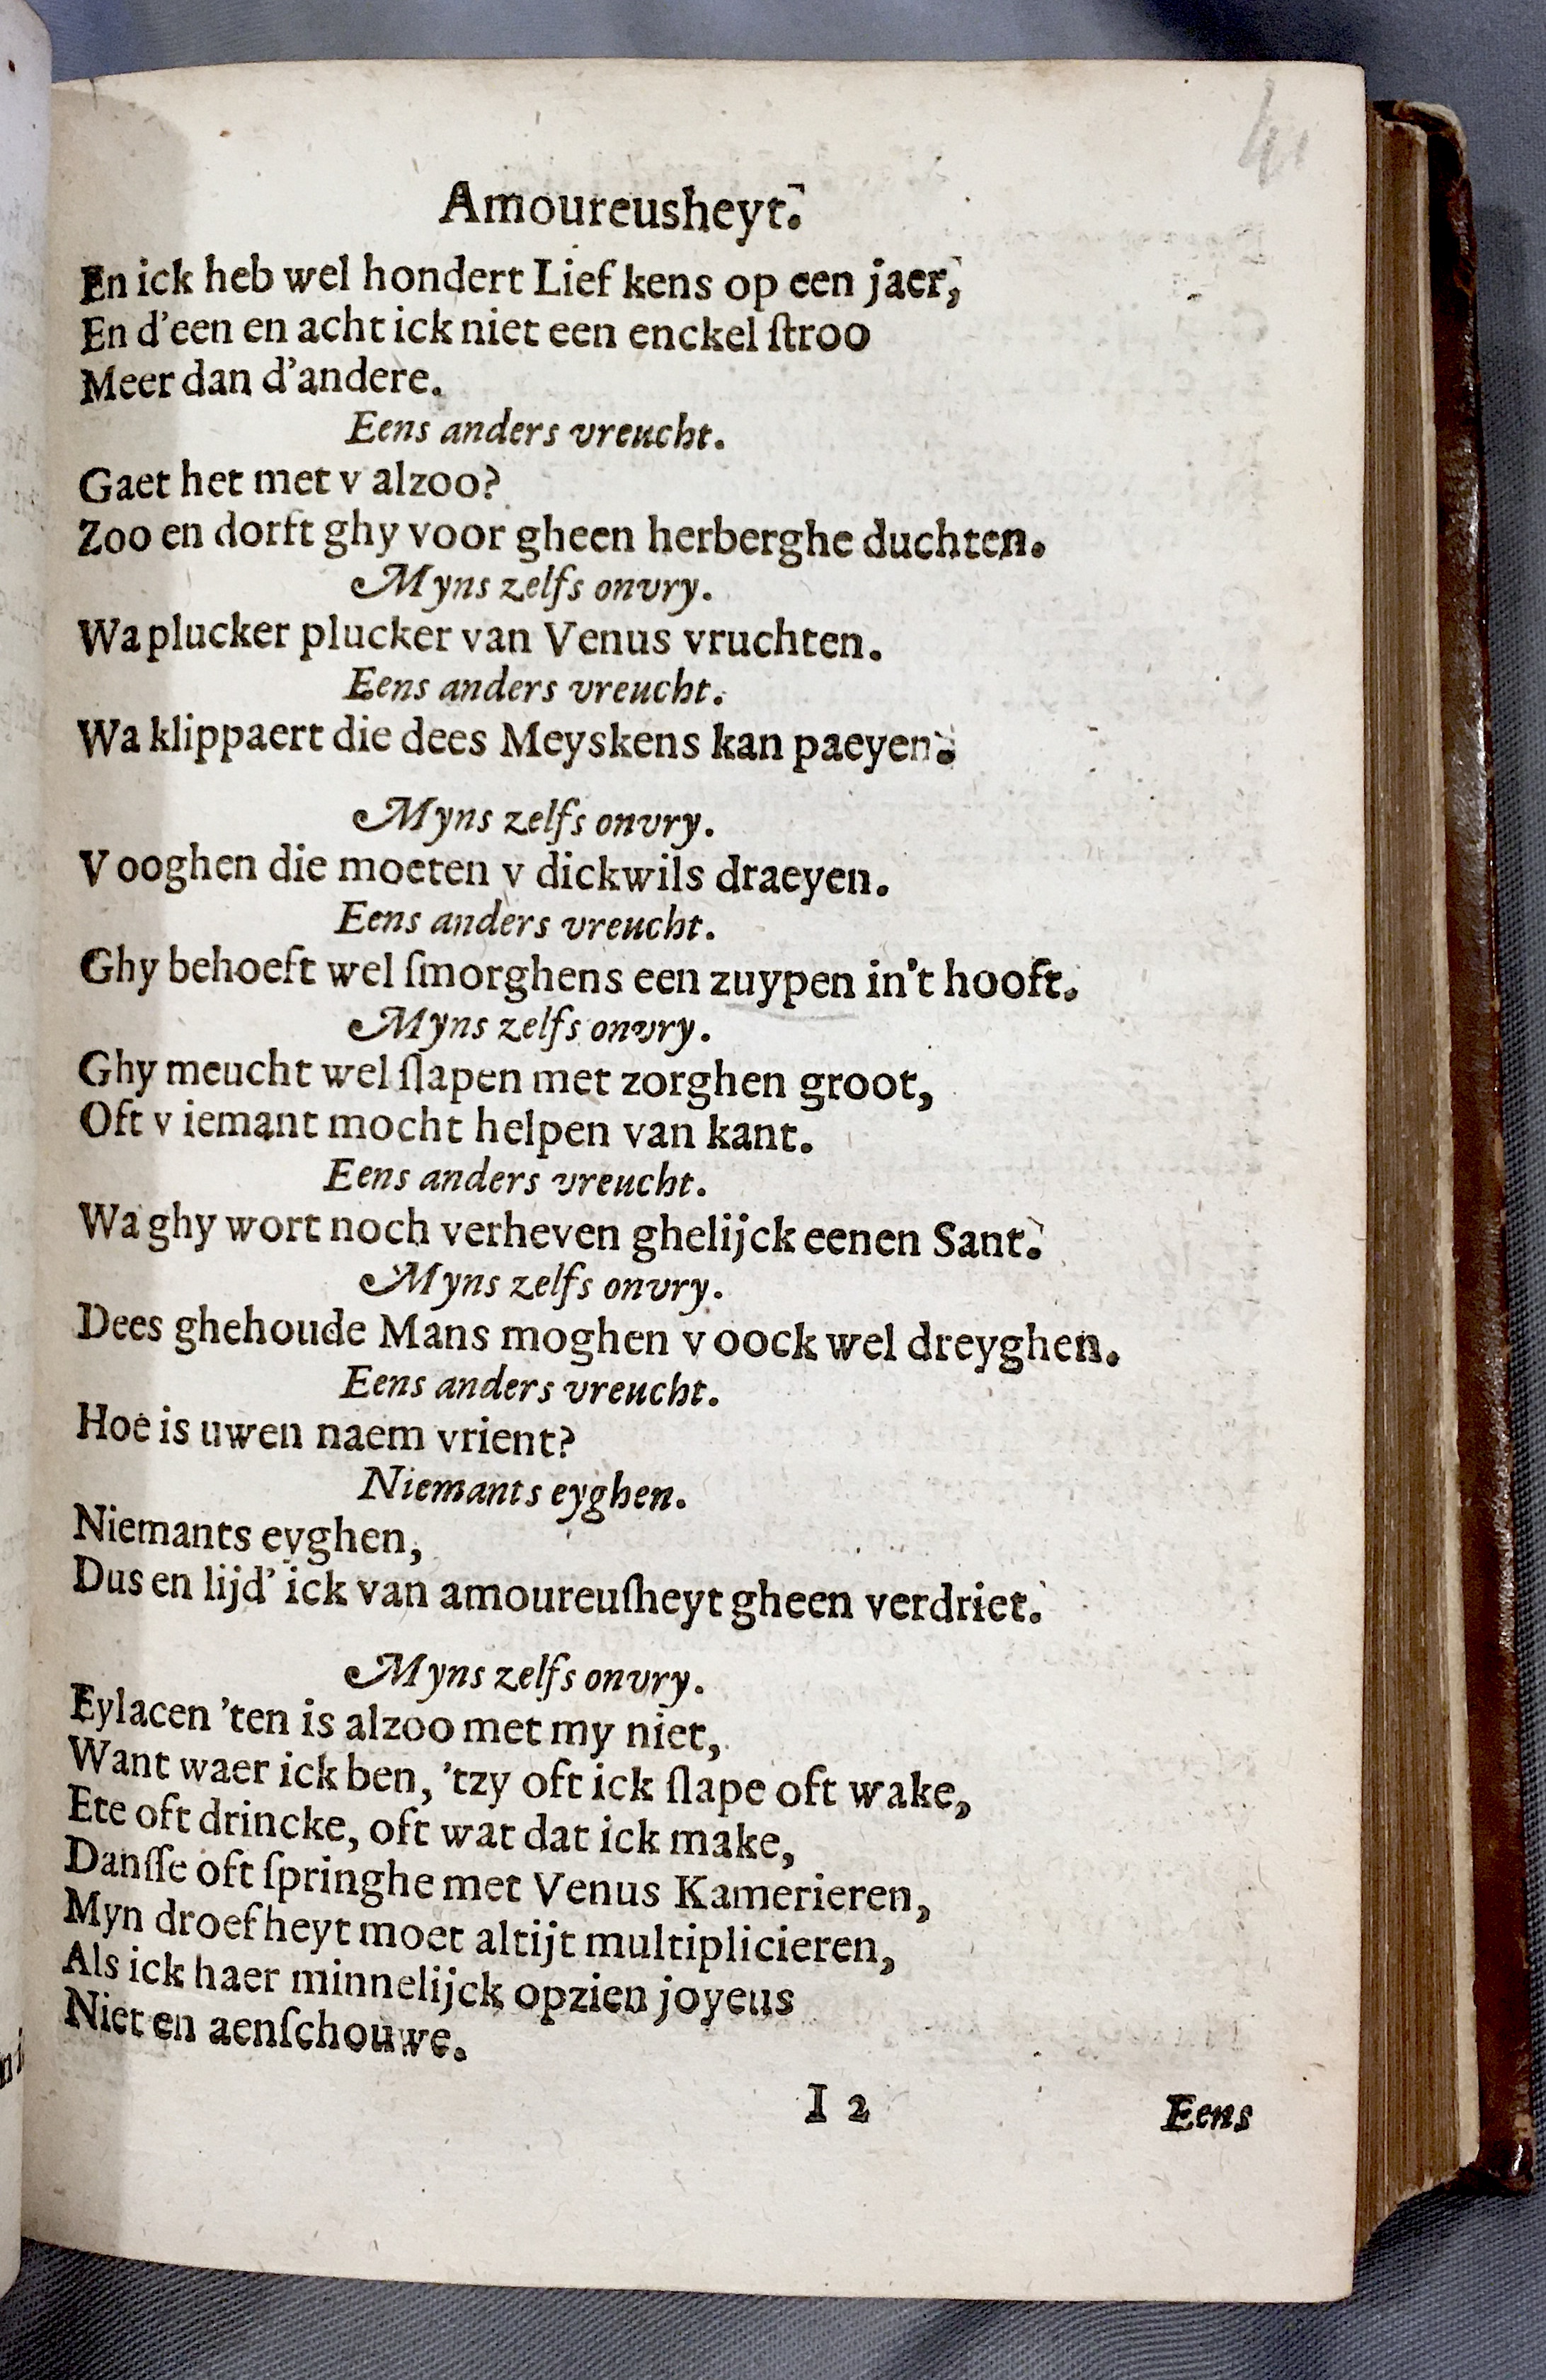 Amoureusheyt.
En ick heb wel hondert Liefkens op een jaer,
En d'een en acht ick niet een enckel ſtroo
Meer dan d'andere.
Eens anders vreucht.
Gaet het met v alzoo?
Zoo en dorft ghy voor gheen herberghe duchten.
Myns zelfs onvry.
Wa plucker plucker van Venus vruchten.
Eens anders vreucht.
Wa klippaert die dees Meyskens kan paeyen.
Myns zelfs onvry.
V ooghen die moeten v dickwils draeyen.
Eens anders vreucht.
Ghy behoeft wel ſmorghens een zuypen in't hooft.
Myns zelfs onvry.
Ghy meucht wel ſlapen met zorghen groot,
Oft v iemant mocht helpen van kant.
Eens anders vreucht.
Wa ghy wort noch verheven ghelijck eenen Sant.
Myns zelfs onvry.
Dees ghehoude Mans moghen v oock wel dreyghen.
Eens anders vreucht.
Hoe is uwen naem vrient?
Niemants eyghen.
Niemants eyghen,
Dus en lijd' ick van amoureuſheyt gheen verdriet.
Myns zelfs onvry.
Eylacen 'ten is alzoo met my niet,
Want waer ick ben, 'tzy oft ick ſlape oft wake,
Ete oft drincke, oft wat dat ick make,
Danſſe oft ſpringhe met Venus Kamerieren,
Myn droefheyt moet altijt multiplicieren,
Als ick haer minnelijck opzien joyeus
Niet en aenſchouwe.
I 2
Eens